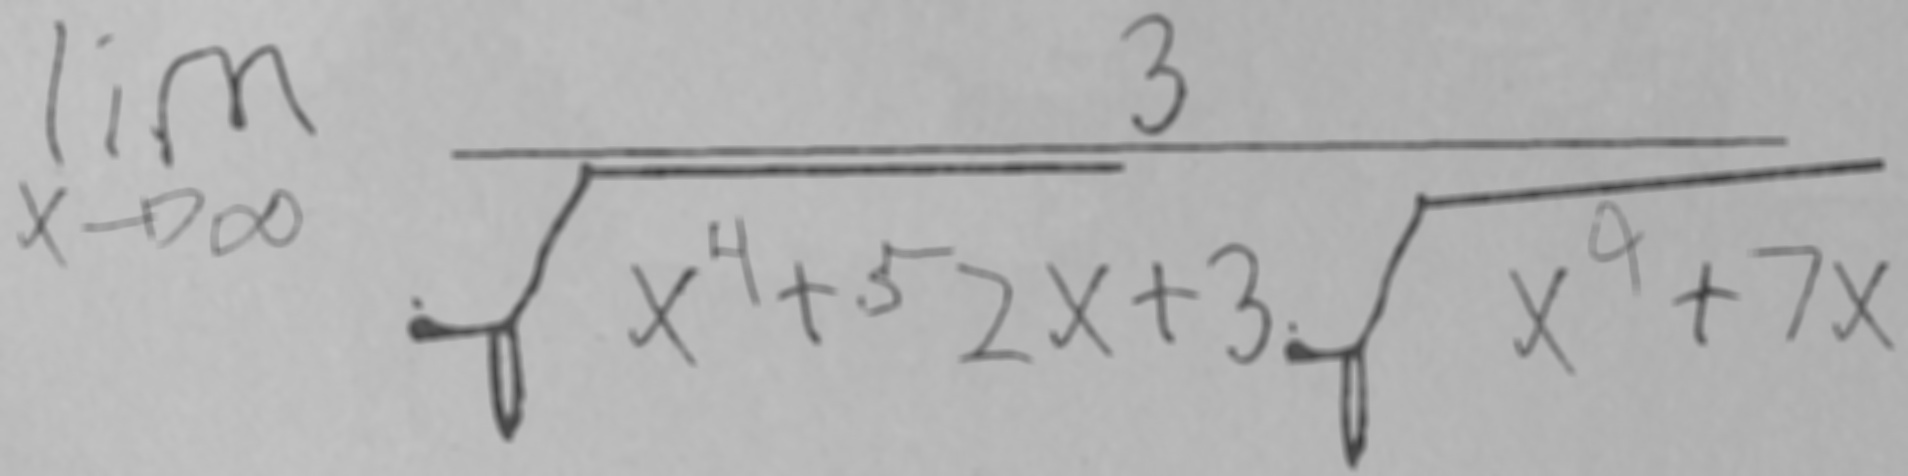 \lim_{x \to \infty} \frac{3}{\sqrt{x^4+52x+3}\sqrt{x^9+7x}}